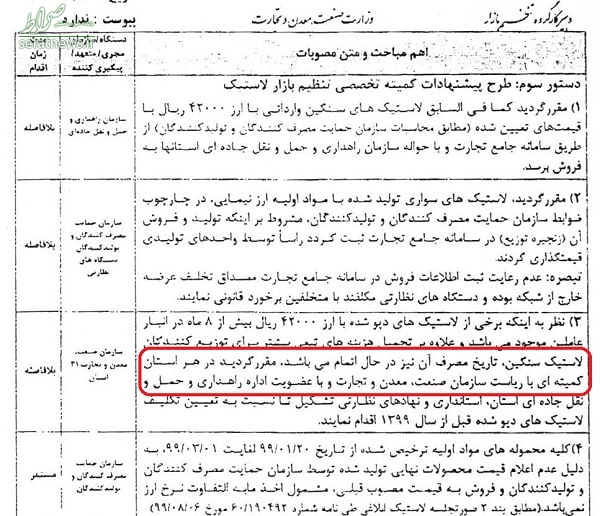 پیوست : ندارد
وزارت صنعت، معدن و تجارت
دبیر کارگروه تنظیم بازار
صراط
seratnews.ir
اهم مباحث و متن مصوبات
دستگاه/سازمان مجری/متعهد/ پیگیری کننده
زمان اقدام
دستور سوم: طرح پیشنهادات کمیته تخصصی تنظیم بازار لاستیک
۱) مقررگردید کما فی السابق لاستیک های سنگین وارداتی با ارز ۴۲۰۰۰ ریال با
قیمت‌های تعیین شده (مطابق محاسبات سازمان حمایت مصرف کنندگان و تولیدکنندگان) از
طریق سامانه جامع تجارت و با حواله سازمان راهداری و حمل و نقل جاده ای استانها به
فروش برسد.
سازمان راهداری و
حمل و نقل جاده‌ای
بلافاصله
۲) مقررگردید، لاستیک های سواری تولید شده با مواد اولیه ارز نیمایی، در چارچوب
ضوابط سازمان حمایت مصرف کنندگان و تولیدکنندگان، مشروط بر اینکه تولید، و فروش
آن (زنجیره توزیع) در سامانه جامع تجارت ثبت گردد راساً توسط واحدهای تولیدی
قیمتگذاری گردند.
تبصره: عدم رعایت ثبت اطلاعات فروش در سامانه جامع تجارت مصداق تخلف عرضه
خارج از شبکه بوده و دستگاه های نظارتی مکلفند با متخلفین برخورد قانونی نمایند.
سازمان حمایت
مصرف کنندگان و
تولیدکنندگان
دستگاه های
نظارتی
بلافاصله
۳) نظر به اینکه برخی از لاستیک های دپو شده با ارز ۴۲۰۰۰ ریال بیش از ۸ ماه در انبار
عاملین موجود می باشد و علاوه بر تحمیل هزینه های تبعی بیشتر برای توزیع کنندگان
لاستیک سنگین، تاریخ مصرف آن نیز در حال اتمام می باشد، مقررگردید در هر استان
کمیته ای با ریاست سازمان صنعت، معدن و تجارت و با عضویت اداره راهداری و حمل و
نقل جاده ای استان، استانداری و نهادهای نظارتی تشکیل تا نسبت به تعیین تکلیف
لاستیک های دپو شده قبل از سال ۱۳۹۹ اقدام نمایند.
سازمان صنعت،
معدن و تجارت ۳۱
استان
بلافاصله
۴) کلیه محموله های مواد اولیه ترخیص شده از تاریخ ۹۹/۰۱/۲۰ لغایت ۹۹/۰۳/۰۱ به
دلیل عدم اعلام قیمت محصولات نهایی تولید شده توسط سازمان حمایت مصرف کنندگان
و تولیدکنندگان و فروش به قیمت مصوب قبلی، مشمول اخذ مابه التفاوت نرخ ارز
نمی‌باشد.(مطابق بند ۲ صورتجلسه لاستیک ابلاغی طی نامه شماره ۶۰/۱۹۰۴۹۲ مورخ ۹۹/۰۸/۰۶)
سازمان حمایت
مصرف کنندگان و
تولیدکنندگان
مستمر